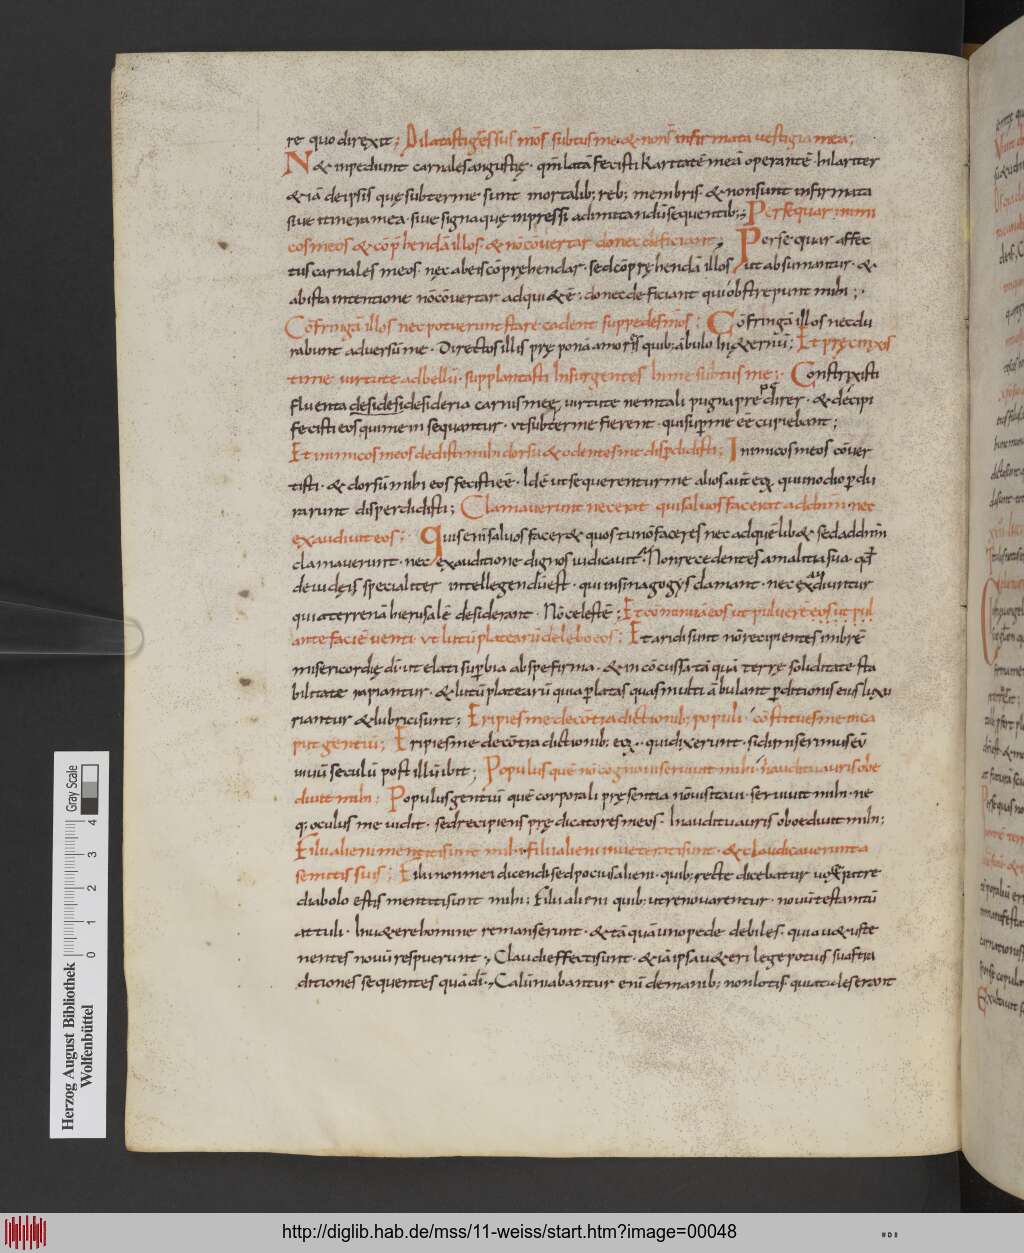 re quo direxit; Dilatasti gressus mōs subtus me & non s̄ infirmata uestigia mea;
N& inpediunt carnales angustię. qm̄ latā fecisti karitatē meā operantē hilariter
& iā de ipsis quę subter me sunt mortalib; reb; membris. & non sunt infirmata
siue itinera mea. siue signa quę inpressi ad imitandū sequentib;; Persequar inimi
cos meos & cōp̄hendā illos. & nō cōuertar donec deficiant; Persequar affec
tus carnales meos. nec ab eis cōpręhendar. sed cōpręhendā illos ut absumantur. &
ab ista intentione nō cōuertar ad qui&ē. donec deficiant qui obstrepunt mihi;
Cōfringā illos nec potuerunt stare cadent sup pedes mōs; Cōfringā illos nec du
rabunt aduersū me. Directos illis prę ponā amores quib; ābulo in &ernū; Et pręcinxis
ti me uirtute ad bellū. supplantasti insurgentes in me subtus me; Constrixisti
fluenta desidesi desideria carnis meę uirtute ne in tali pugna pre pedirer. & decipi
fecisti eos qui me insequantur. ut subter me fierent. qui sup me eē cupiebant;
Et inimicos meos dedisti mihi dorsū & odentes me disp̱didisti; Inimicos meos cōuer
tisti. & dorsū mihi eos fecisti eē. Id ē ut sequerentur me alios autē eoꝝ qui in odio ꝑdu
rarunt disperdidisti; Clamauerunt nec erat qui saluos faceret ad dn̄m. nec
exaudiuit eos; Quis enī saluos facer&. quos tu nō faceres nec ad quē lib& sed ad dn̄m
clamauerunt. nec exauditione dignos iudicauit. Non recedentes a malitia sua. qđ
de iudęis specialiter intellegendū est. qui in sinagogys clamant. nec exaudiuntur
quia terrenā hierusalē desiderant. Nō celestē; Et cōminuā eos ut puluerē eos ut pul
ante faciē uenti. ut lutū platearū delebo eos; Et aridi sunt nō recipientes imbrē
misericordię dī. ut elati suꝑbia ab spe firma. & incōcussa tā quā terrę soliditate sta
bilitate rapiantur. & lutū platearū quia ꝑ latas quas multi ābulant ꝑditionis eius luxu
riantur & lubrici sunt; Eripies me de cōtradictionib; populi. cōstitues me in ca
put gentiū; Eripies me de cōtradictionib; eoꝝ. qui dixerunt. si dimiserimus eū
uiuū seculū post illū ibit; Populus quē nō cognoui seruiuit mihi. in auditu auris obe
diuit mihi; Populus gentiū quē corporali pręsentia nō uisitaui. seruiuit mihi. ne
q; oculus me uidit. sed recipiens prędicatores meos. In auditu auris oboediuit mihi;
Filii alieni mentiti sunt mihi. filii alieni inueterati sunt. & claudicauerunt a
semitis suis; Filii non mei dicendi sed pocius alieni. quib; recte dicebatur uos ex patre
diabolo estis mentiti sunt mihi; Filii alieni quib; ut renouarentur. nouū testamtū
attuli. In u&ere homine remanserunt. & tā quā uno pede debiles. quia u&us te
nentes nouū respuerunt; Claudi effecti sunt. & iā ipsa u&eri lege potius sua tra
ditiones sequentes quā dī; Calūniabantur enī de manib; non lotis. quia tales erant
Herzog August Bibliothek
Wolfenbüttel
0 1 2 3 4
Gray Scale
http://diglib.hab.de/mss/11-weiss/start.htm?image=00048